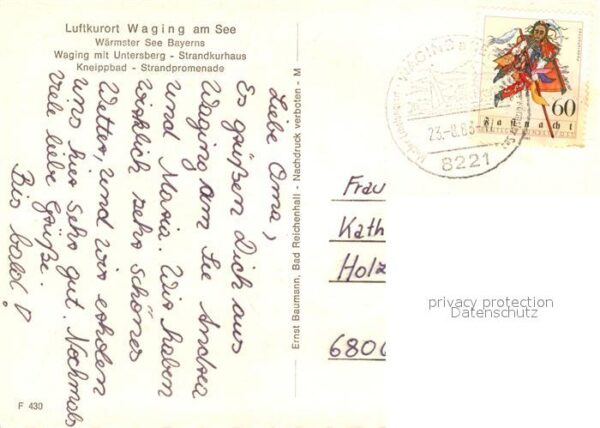 Luftkurort Waging am See
Wärmster See Bayerns
Waging mit Untersberg - Strandkurhaus
Kneippbad - Strandpromenade
Liebe Oma,
Es grüßen Dich aus
Waging am See Andrea
und Maria. Wir haben
wirklich sehr schönes
Wetter, und wir erholen
uns hier sehr gut. Nochmals
viele liebe Grüße.
Bis bald!
F 430
Ernst Baumann, Bad Reichenhall - Nachdruck verboten - M
WAGING a
23.-8.83
8221
60
Fasnacht
DEUTSCHE BUNDESPOST
Frau
Kath
Holz
6800
privacy protection
Datenschutz